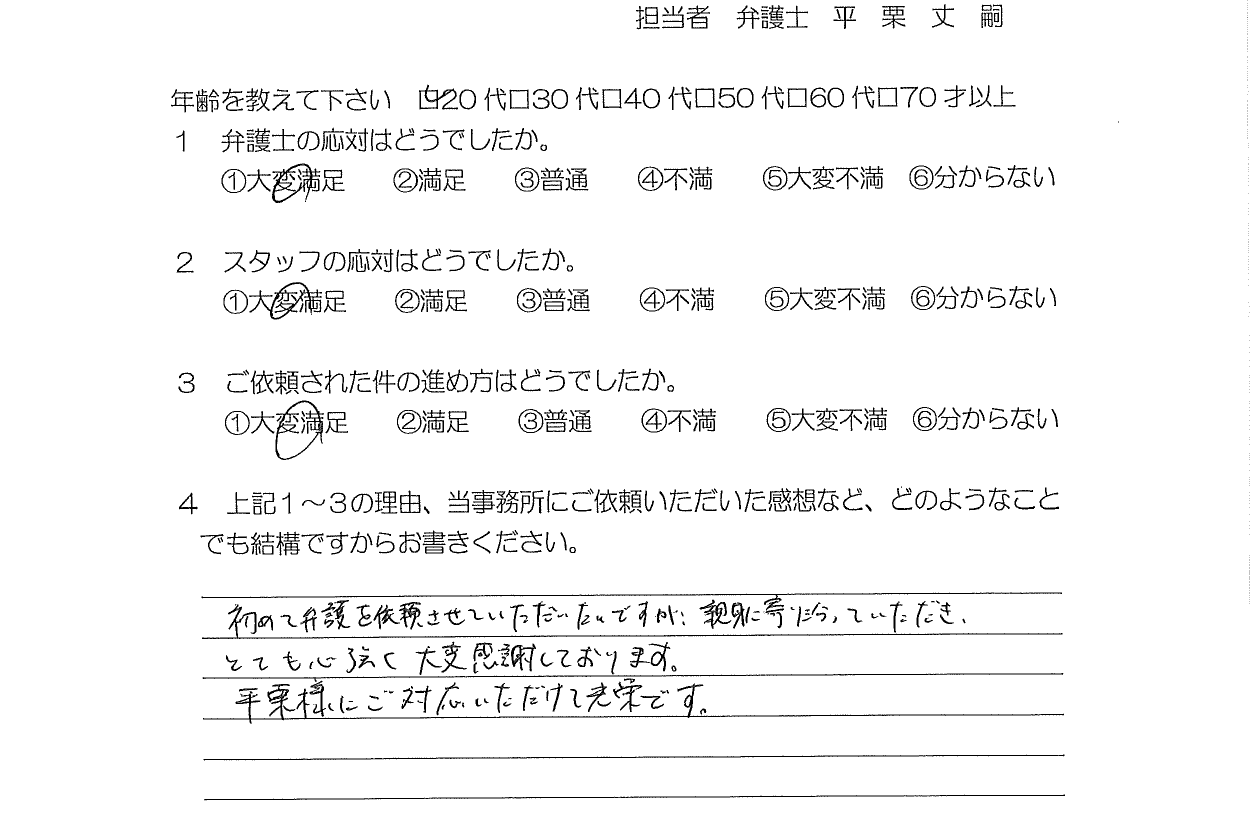 担当者　弁護士　平　栗　丈　嗣
年齢を教えて下さい　☑20代□30代□40代□50代□60代□70才以上
1　弁護士の応対はどうでしたか。
①大変満足　②満足　③普通　④不満　⑤大変不満　⑥分からない
2　スタッフの応対はどうでしたか。
①大変満足　②満足　③普通　④不満　⑤大変不満　⑥分からない
3　ご依頼された件の進め方はどうでしたか。
①大変満足　②満足　③普通　④不満　⑤大変不満　⑥分からない
4　上記1～3の理由、当事務所にご依頼いただいた感想など、どのようなこと
でも結構ですからお書きください。
初めて弁護を依頼させていただいたんですが、親身に寄り沿っていただき、
とても心強く大変感謝しております。
平栗様にご対応いただけて光栄です。